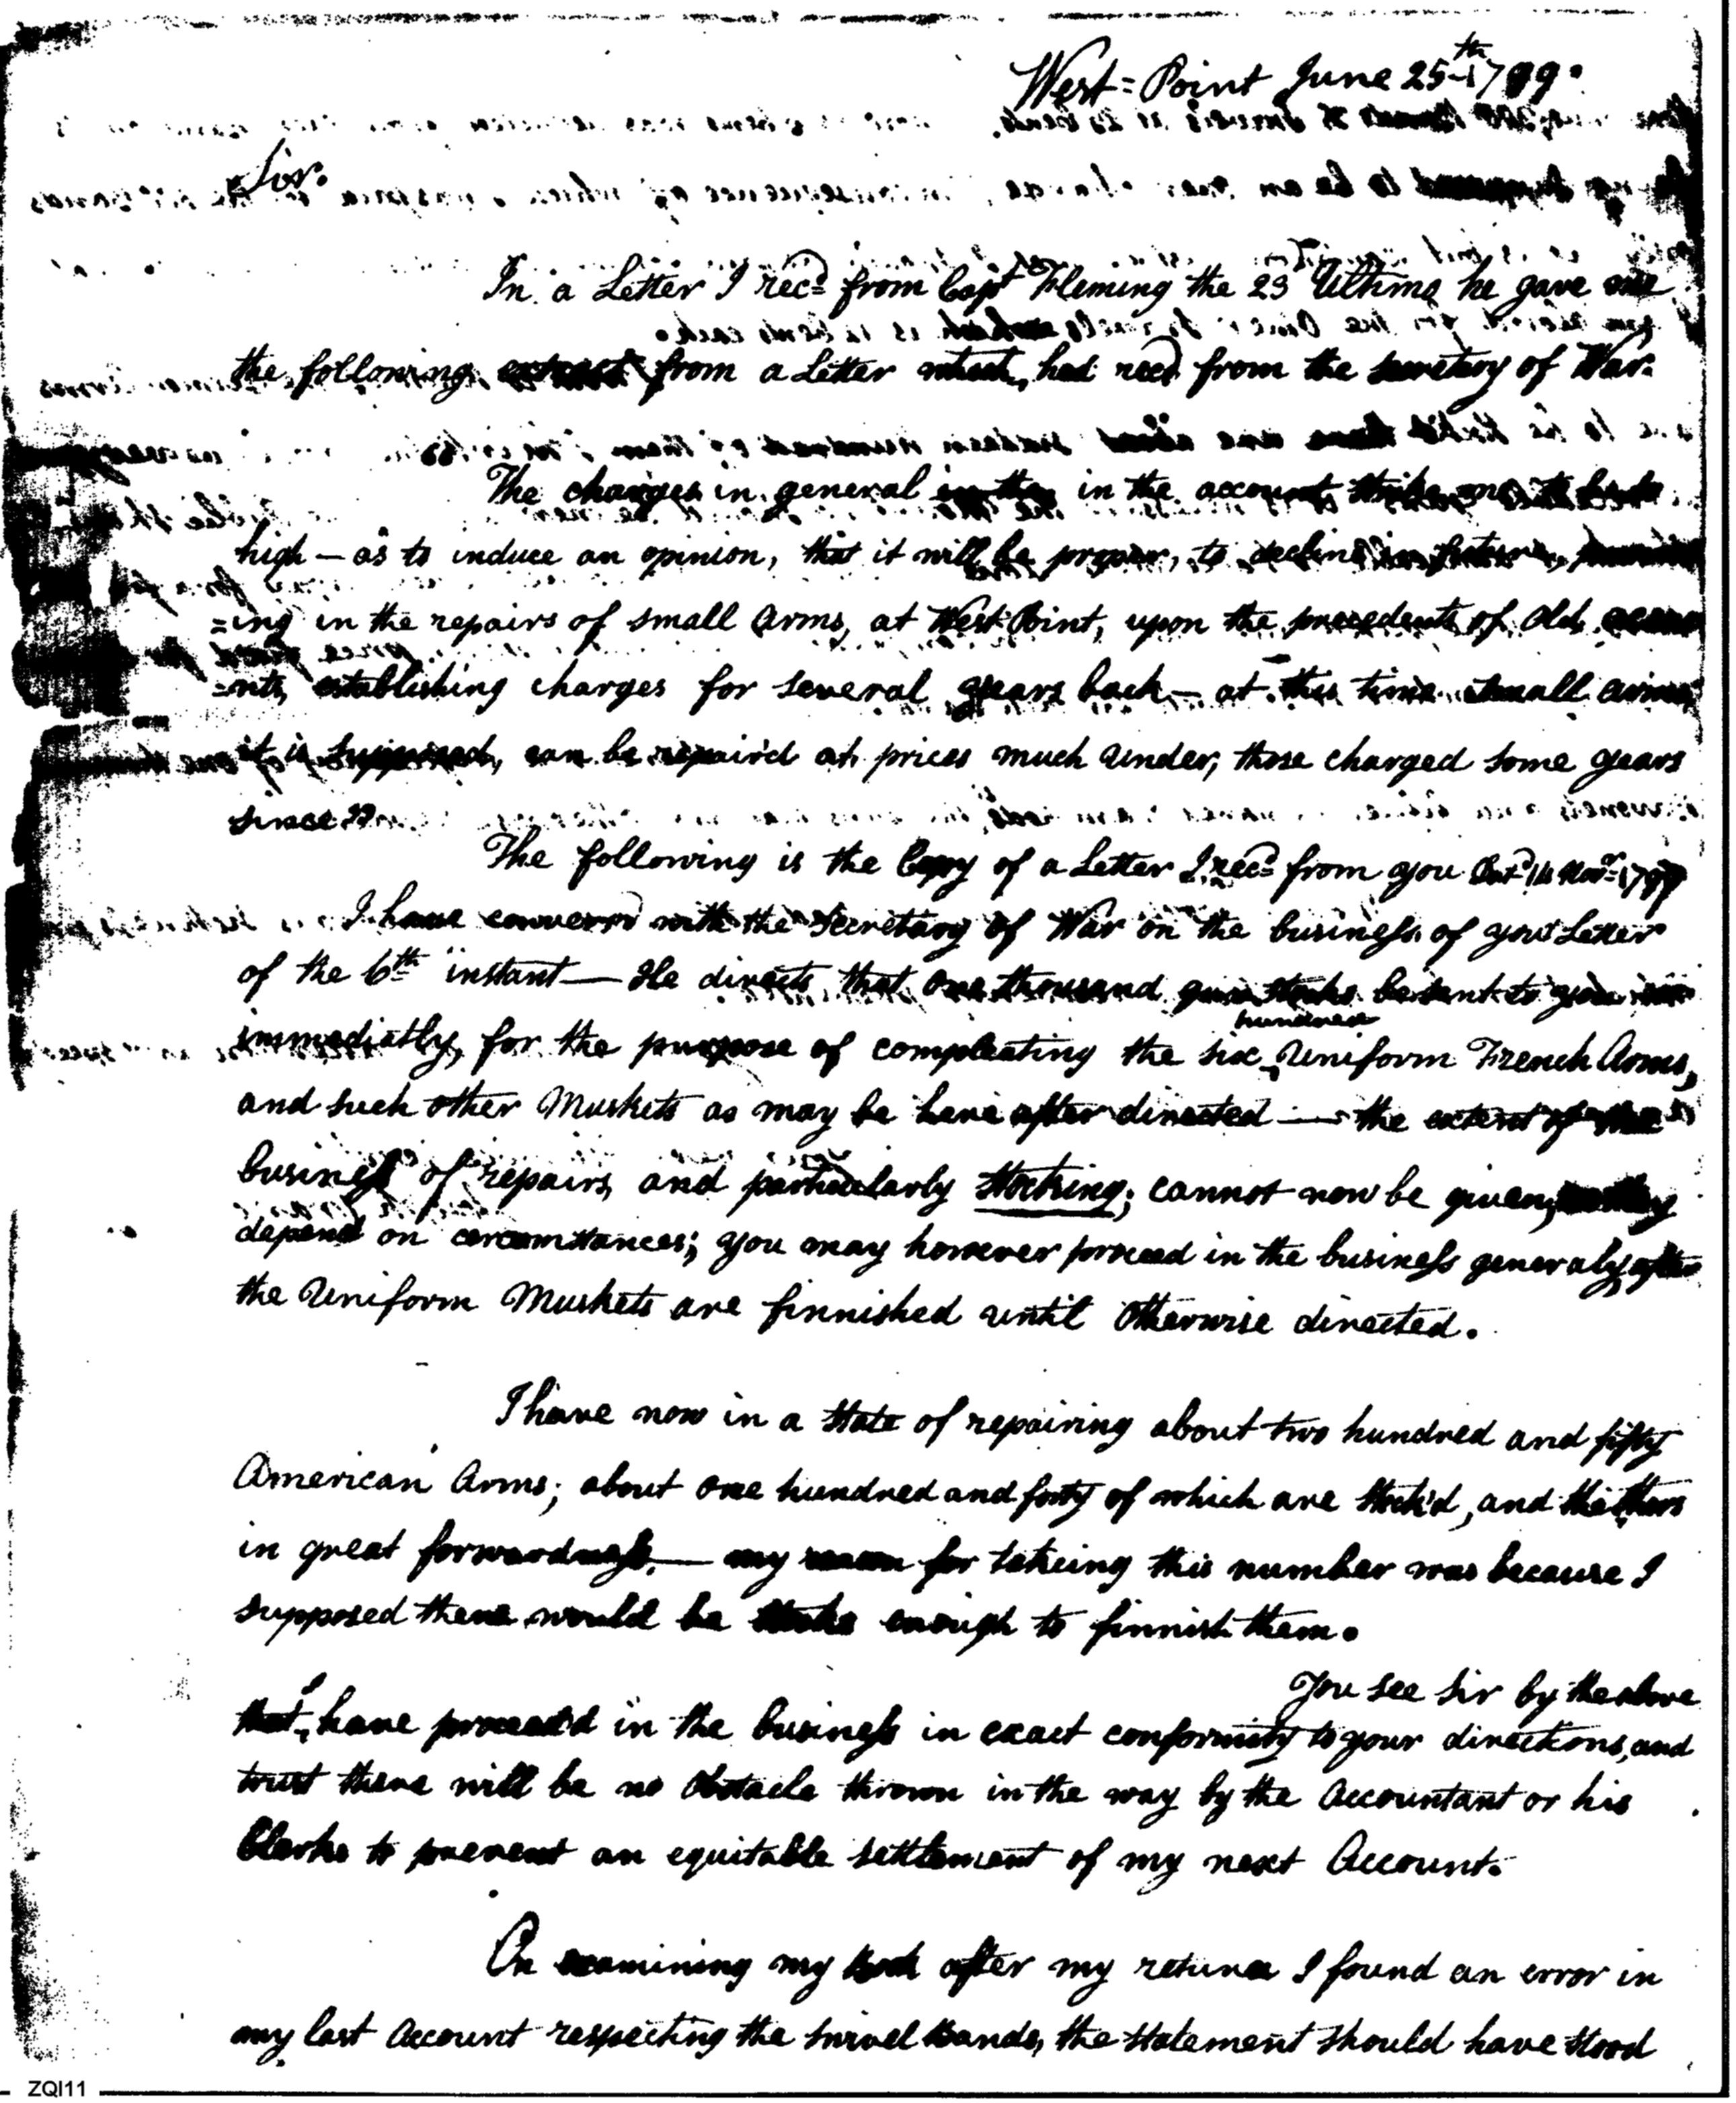 West=Point June 25th 1799.
Sir.
In a Letter I recd from Capt Fleming the 23 Ultimo he gave me
the following extract from a Letter which, had recd from the secretary of War.
The charges in general in the in the account, strike me to be so
high – as to induce an opinion, that it will be proper, to decline in future,
=ing in the repairs of small Arms, at West Point, upon the precedents of Old accou
=nts, establishing charges for several years back – at this time small arms
it is supposed, can be repair'd at prices much under, those charged some years
since"
The following is the Copy of a Letter I recd from you 14 Novr 1797
I have convers'd with the Secretary of War on the business of your Letter
of the 6th instant — He directs that One thousand gun stocks be sent to you
immediatly, for the purpose of compleating the six hundred Uniform French Arms,
and such other Muskets as may be here after directed — the extent of the
business of repairs, and particularly Stocking; cannot now be given,
depend on circumstances; you may however proceed in the business generaly after
the Uniform Muskets are finnished until otherwise directed.
I have now in a state of repairing about two hundred and fifty
American Arms; about one hundred and forty of which are stock'd, and the others
in great forwardness, — my reason for takeing this number was because I
supposed there would be stocks enough to finnish them.
You see Sir by the above
that I have proceed'd in the business in exact conformity to your directions, and
trust there will be no Obstacle thrown in the way by the Accountant or his
Clerks to prevent an equitable settlement of my next Account.
On examining my book after my return I found an error in
my last Account respecting the swivel bands, the statement should have stood
ZQI11